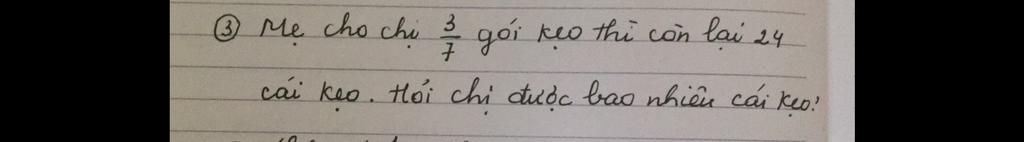 ③ Mẹ cho chị 3/7 gói kẹo thì còn lại 24
cái kẹo. Hỏi chị được bao nhiêu cái kẹo?